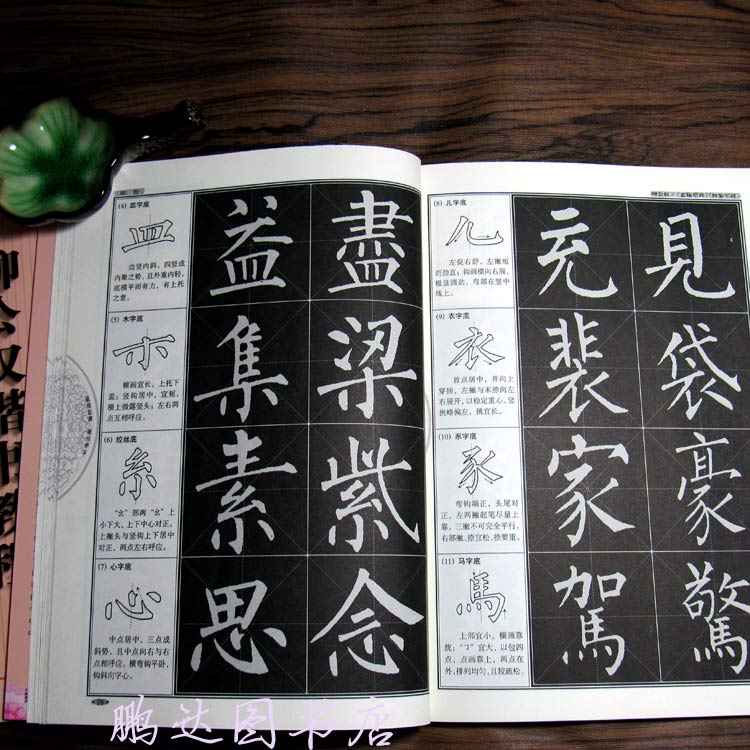 (4) 皿字底
皿
边竖内斜，四竖成
内聚之势，且外重内轻，
底横平而有力，有上托
之意。
益 盡
(5) 木字底
木
横画宜长，上托下
盖；竖钩居中，宜短，
横上微露竖头；左右两
点互相呼应。
集 梁
(6) 绞丝底
糸
“幺”部两“幺”上
小下大，上下中心对正，
上撇头与竖钩上下居中
对正，两点左右呼应。
素 紫
(7) 心字底
心
中点居中，三点成
斜势，且中点向右与右
点相呼应。横弯钩平卧，
钩斜向字心。
思 念
(8) 儿字底
儿
左促右舒，左撇短
而劲直；钩画横向右展，
极显圆劲，弯部在竖中
线上。
元 見
(9) 衣字底
衣
首点居中，并向上
穿插，左撇与末捺向左
右展开，以稳定重心。竖
挑略偏左，挑宜长。
裴 袋
(10) 豕字底
豕
弯钩端正，头尾对
正，左两撇起笔尽量上
靠，三撇不可完全平行，
右部撇、捺宜松，捺要重。
家 豪
(11) 马字底
馬
上部宜小，横画靠
拢；“㇆”宜大，以包四
点，点画靠上，两点在
外，排列均匀，且较疏松。
駕 驚
鹏达图书店